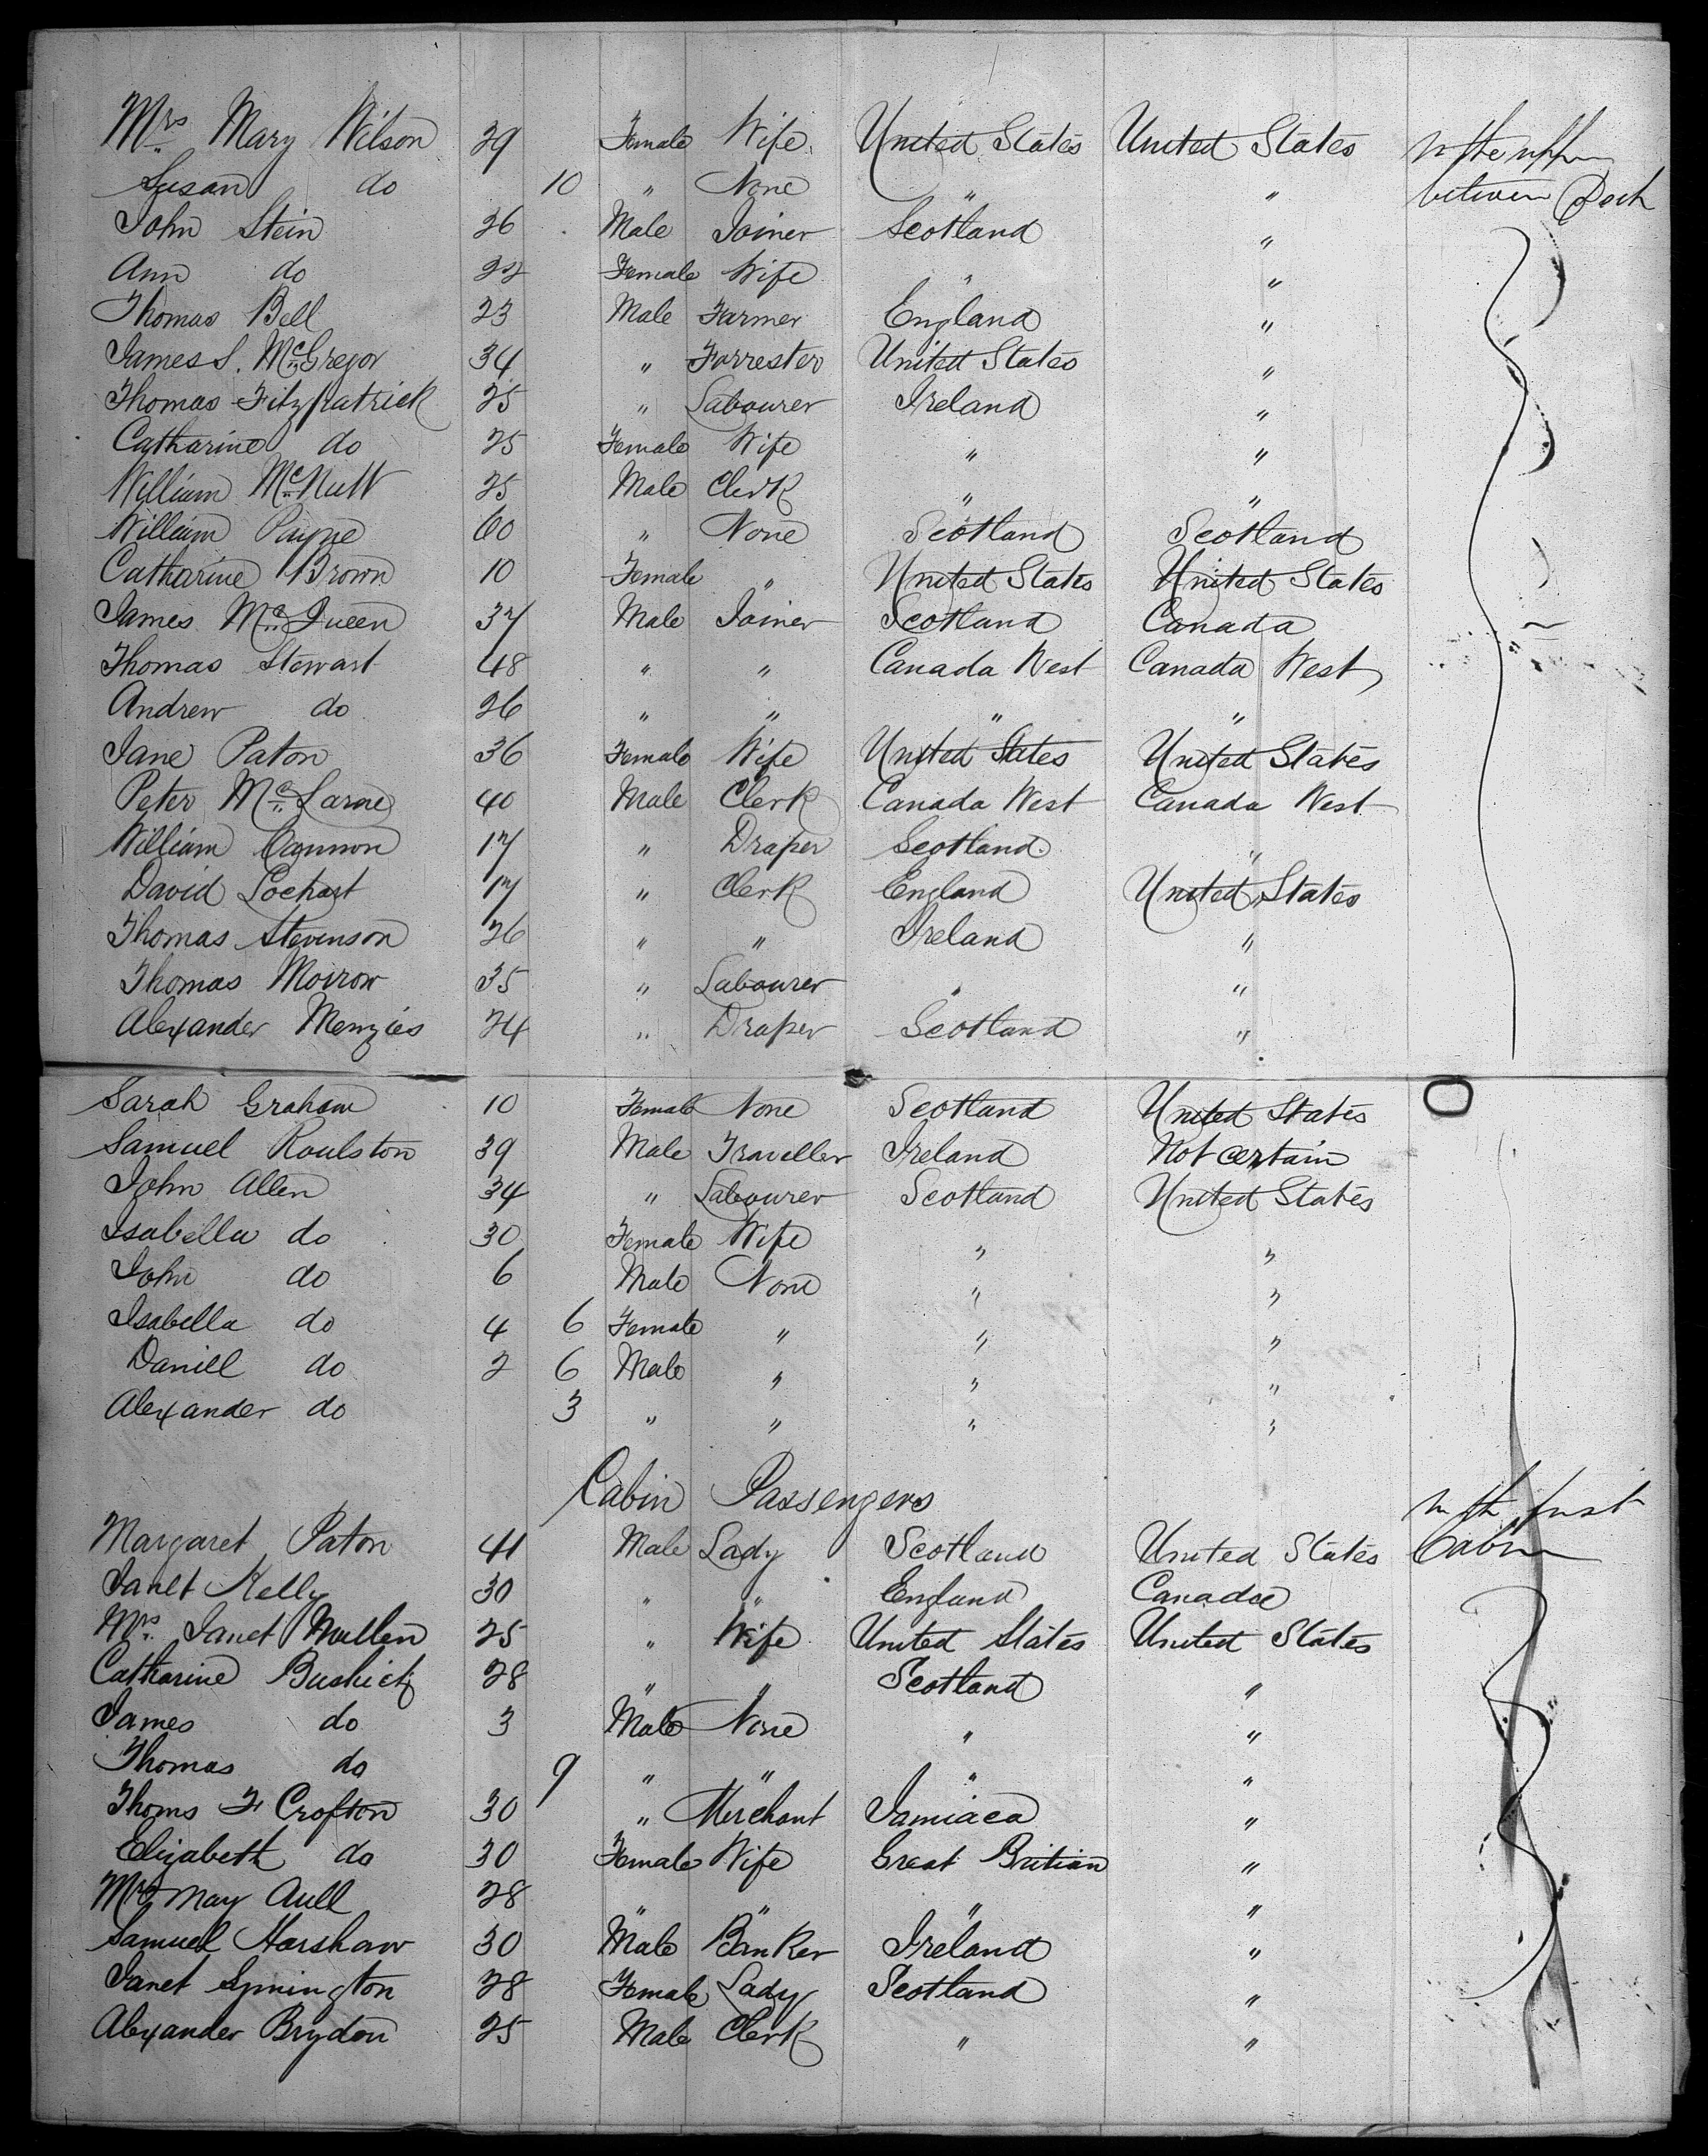 Mrs Mary Wilson 29 Female Wife United States United States In the upper
Susan do 10 " None " " between Deck
John Stein 26 Male Joiner Scotland "
Ann do 22 Female Wife " "
Thomas Bell 23 Male Farmer England "
James S. McGregor 34 " Forrester United States "
Thomas Fitzpatrick 25 " Labourer Ireland "
Catharine do 25 Female Wife " "
William McNutt 25 Male Clerk " "
William Payne 60 " None Scotland Scotland
Catharine Brown 10 Female " United States United States
James McQueen 37 Male Joiner Scotland Canada
Thomas Stewart 48 " " Canada West Canada West
Andrew do 26 " " " "
Jane Paton 36 Female Wife United States United States
Peter McLarne 40 Male Clerk Canada West Canada West
William Cannon 17 " Draper Scotland "
David Lochart 17 " Clerk England United States
Thomas Stevenson 26 " " Ireland "
Thomas Morrow 35 " Labourer " "
Alexander Menzies 24 " Draper Scotland "
Sarah Graham 10 Female None Scotland United States
Samuel Roulston 39 Male Traveller Ireland Not certain
John Allen 34 " Labourer Scotland United States
Isabella do 30 Female Wife " "
John do 6 Male None " "
Isabella do 4 6 Female " " "
Daniel do 2 6 Male " " "
Alexander do 3 " " " "
Cabin Passengers
Margaret Paton 41 Male Lady Scotland United States In the first
Janet Kelly 30 " " England Canada Cabin
Mrs. Janet Mullen 25 " Wife United States United States
Catharine 28 " " Scotland "
James do 3 Male None " "
Thomas do 9 " " " "
Thoms F Crofton 30 " Merchant Jamiaca "
Elizabeth do 30 Female Wife Great Britian "
Mrs May Aull 28 " " " "
Samuel Harshaw 30 Male Banker Ireland "
Janet Symington 28 Female Lady Scotland "
Alexander Brydon 25 Male Clerk " "